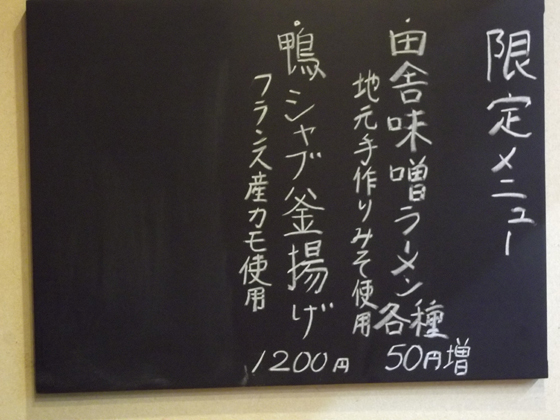 限定メニュー
・田舎味噌ラーメン各種
地元手作りみそ使用
50円増
・鴨シャブ釜揚げ
フランス産カモ使用
1200円